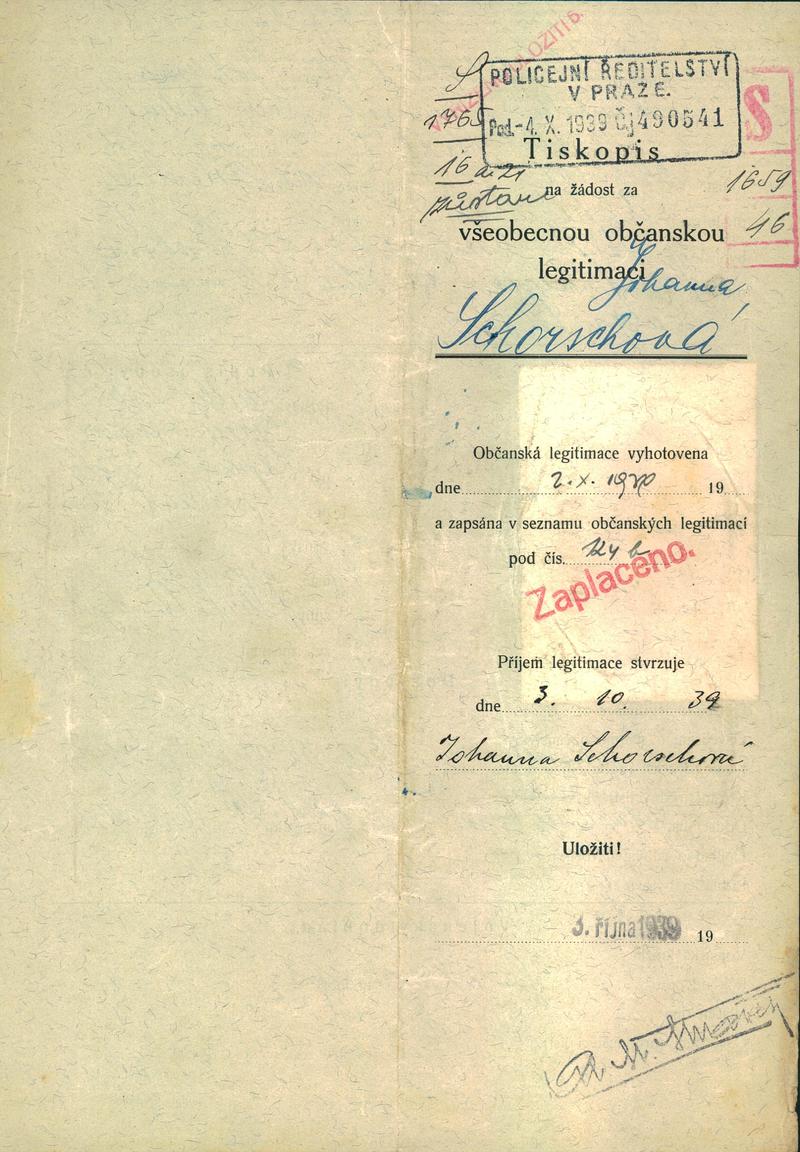 S
POLICEJNÍ ŘEDITELSTVÍ
V PRAZE.
1765
Pod. -4. X. 1939 Čj 490541
S
Tiskopis
16
na žádost za
1659
všeobecnou občanskou
46
legitimaci
Johanna
Schorschová
Občanská legitimace vyhotovena
dne 2. X. 19 19
a zapsána v seznamu občanských legitimací
pod čís.
Zaplaceno.
Příjem legitimace stvrzuje
dne 3. 10. 39
Johanna Schorschová
Uložiti!
3. října 1939 19